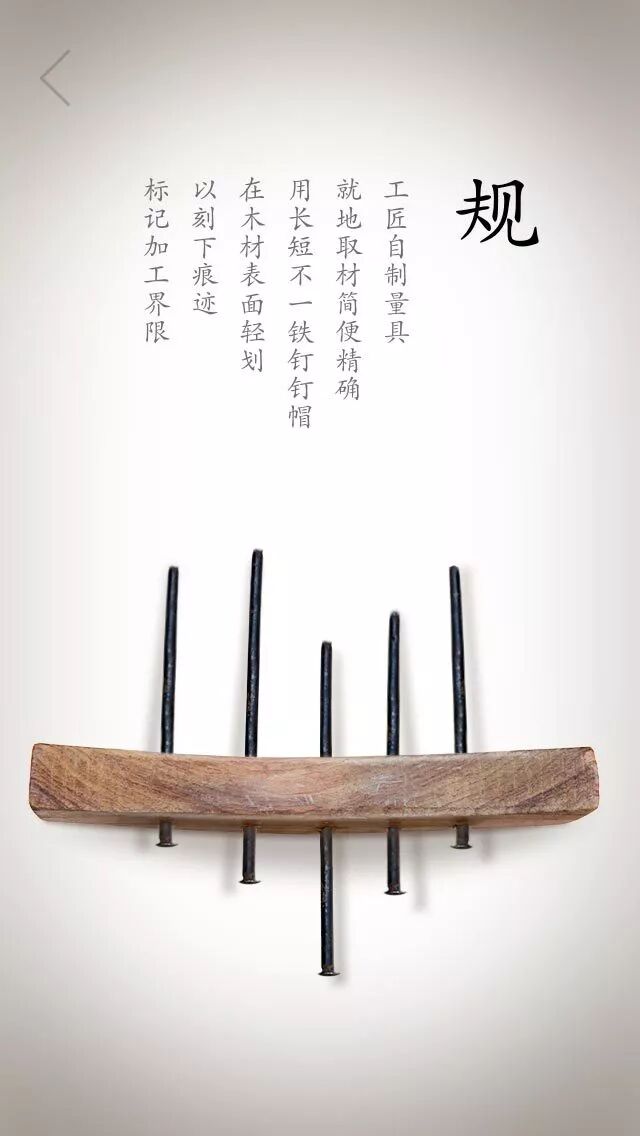 规
工匠自制量具
就地取材简便精确
用长短不一铁钉钉帽
在木材表面轻划
以刻下痕迹
标记加工界限